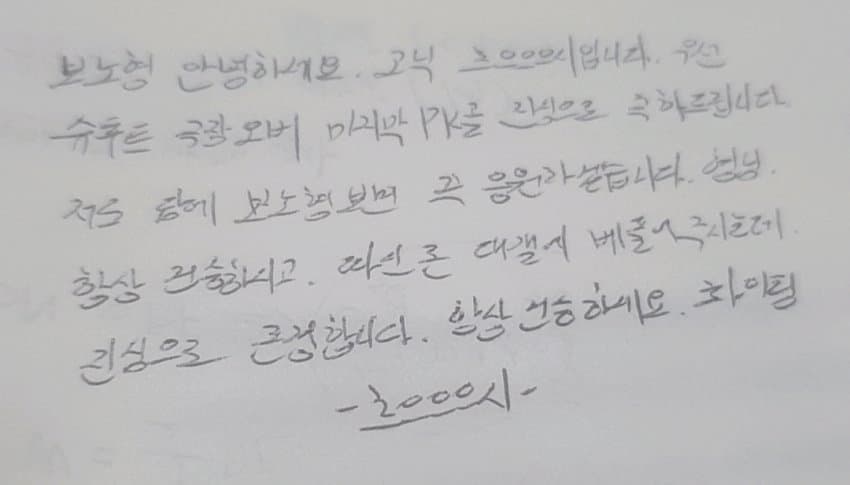 보노형 안녕하세요. 고닉 초ㅇㅇㅇ시입니다. 우선
슈후트 극락오버 마지막 PK골 진심으로 축하드립니다
저도 담에 보노형보면 꼭 응원가겠습니다. 형님.
항상 건승하시고. 따인 돈 대갤에 베풀어주시는데.
진심으로 존경합니다. 항상건승하세요. 화이팅
-초ㅇㅇㅇ시-